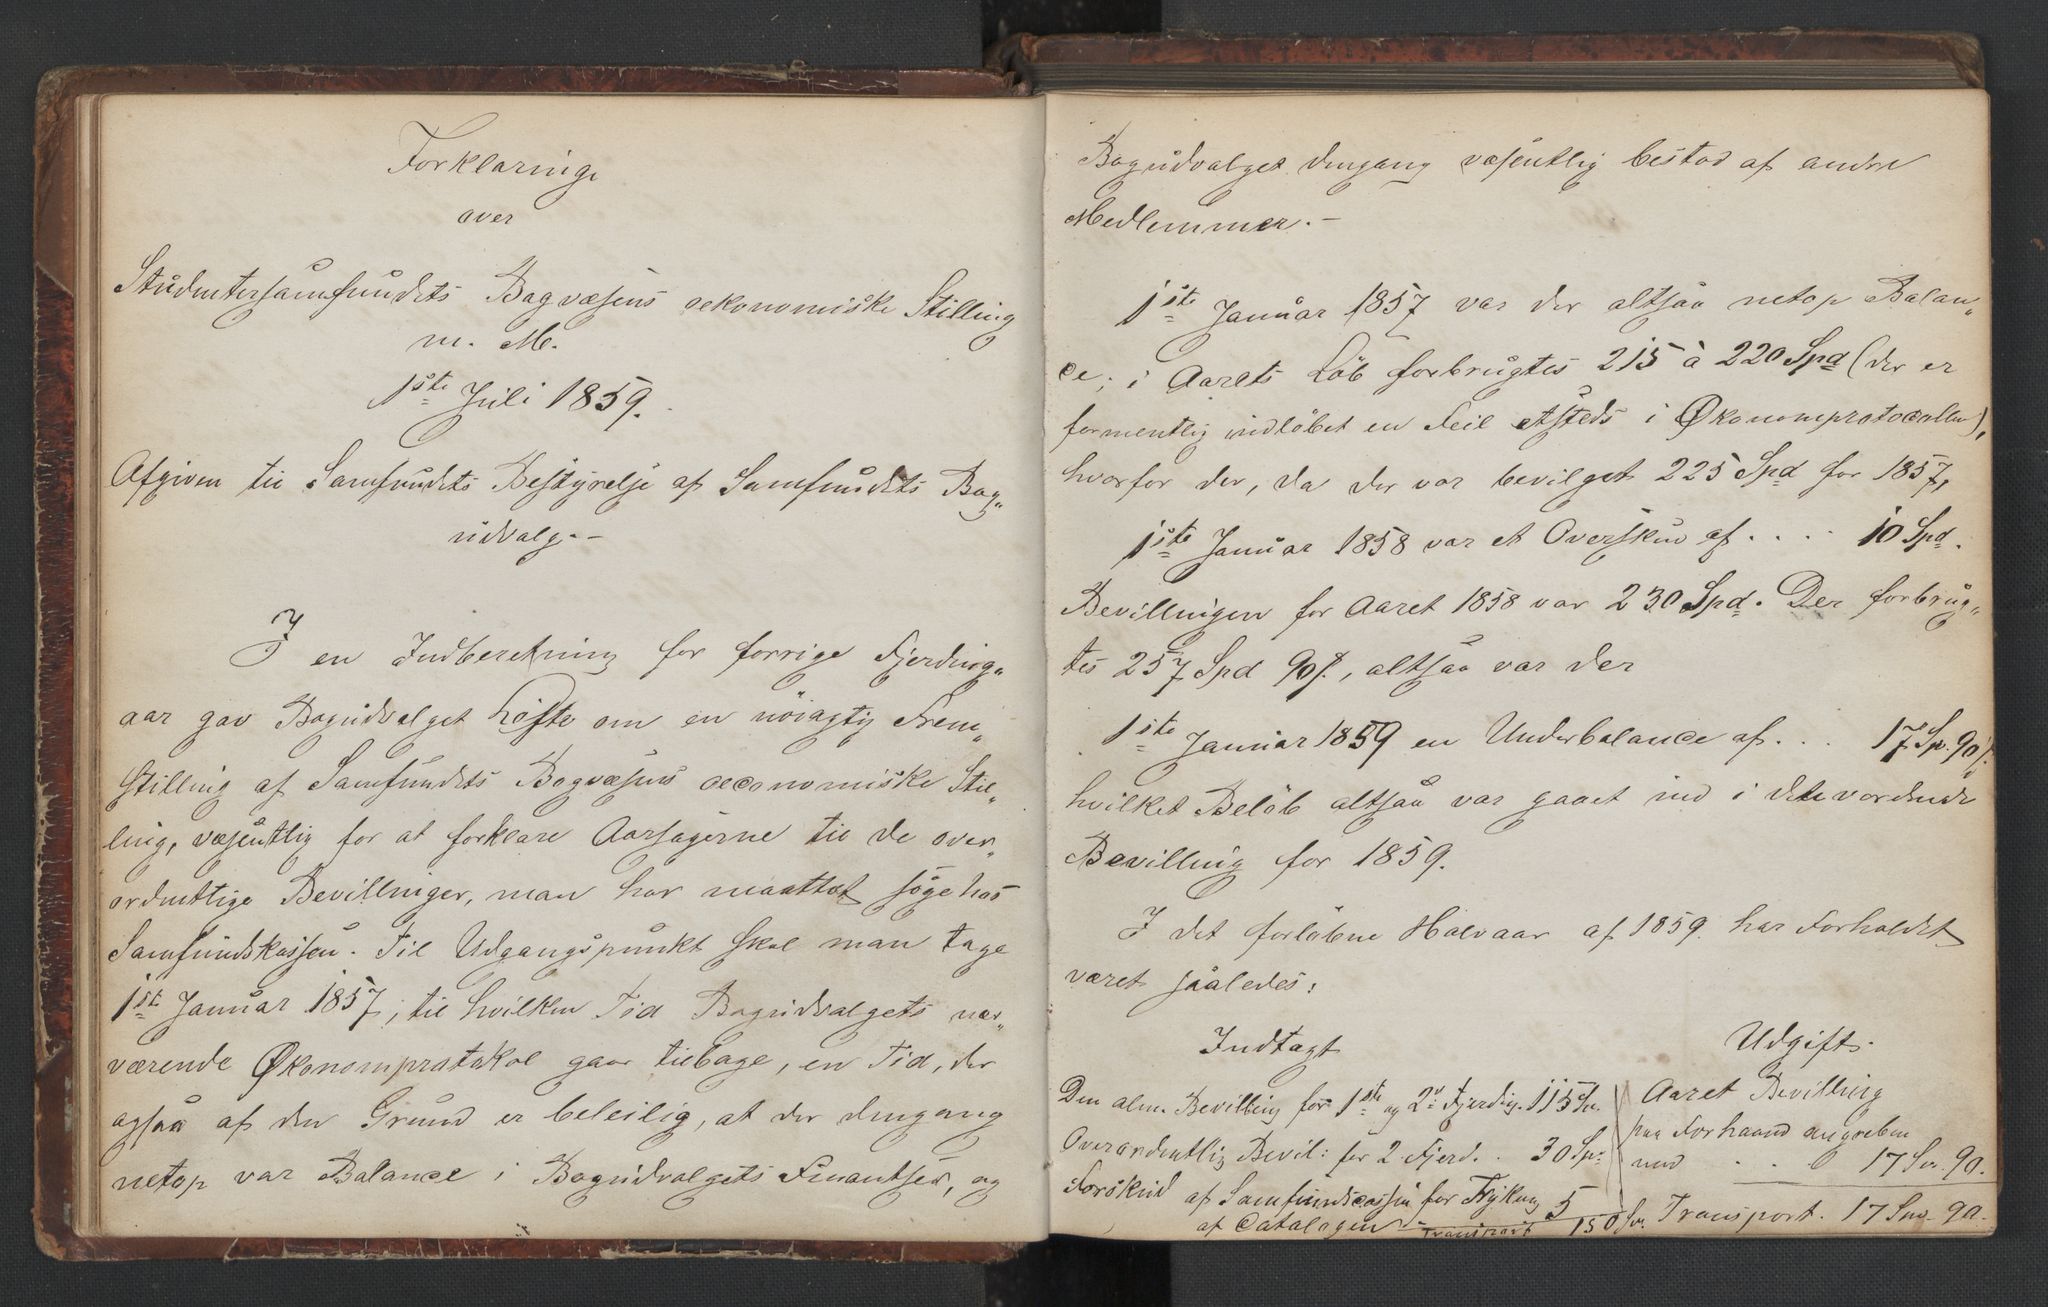 Forklaring
over
Studentersamfundets Bogvæsens oekonomiske Stilling
m. M.
1ste Juli 1859.
Afgiven til Samfundets Bestyrelse af Samfundets Bog„
udvalg.–
I en Indberetning for forrige Fjerding„
aar gav Bogudvalget Løfte om en nöiagtig Frem„
stilling af Samfundets Bogvæsens oeconomiske Stil„
ling, væsentlig for at forklare Aarsagerne til de over„
ordentlige Bevillninger, man har maattet söge hos
Samfundskassen. Til Udgangspunkt skal man tage
1ste Januar 1857, til hvilken Tid Bogudvalgets nær„
værende Økonomprotokol gaar tilbage, en Tid, der
ogsaa af den Grund er beleilig, at der dengang
netop var Balance i Bogudvalgets Finantser, og
Bogudvalget dengang væsentlig bestod af andre
Medlemmer.–
1ste Januar 1857 var der altsaa netop Balan„
ce; i Aarets Löb forbrugtes 215 à 220 Spd (der er
formentlig indlöbet en Feil etsteds i Økonomprotocollen),
hvorfor der, da der var bevilget 225 Spd for 1857,
1ste Januar 1858 var et Overskud af . . . . 10 Spd.
Bevillningen for Aaret 1858 var 230 Spd. Der forbrug„
tes 257 Spd 90 s., altsaa var der
1ste Januar 1859 en Underbalance af . . . 17 Sp. 90 s.
hvilket Belöb altsaa var gaaet ind i den vordende
Bevilling for 1859.
I det forløbne Halvaar af 1859 har Forholdet
været saaledes:
Indtægt
Udgift.
Den alm. Bevilling for 1ste og 2d Fjerding. 115 Sp.
Overordentlig Bevil: for 2 Fjerd. . 30 Sp.
Forskud af Samfundscassen for Trykning 5
af Catalogen –
Transport 150 Sp.
Aaret Bevilling
paa Forhaand angreben
med . . 17 Sp. 90.
Transport. 17 Sp. 90.